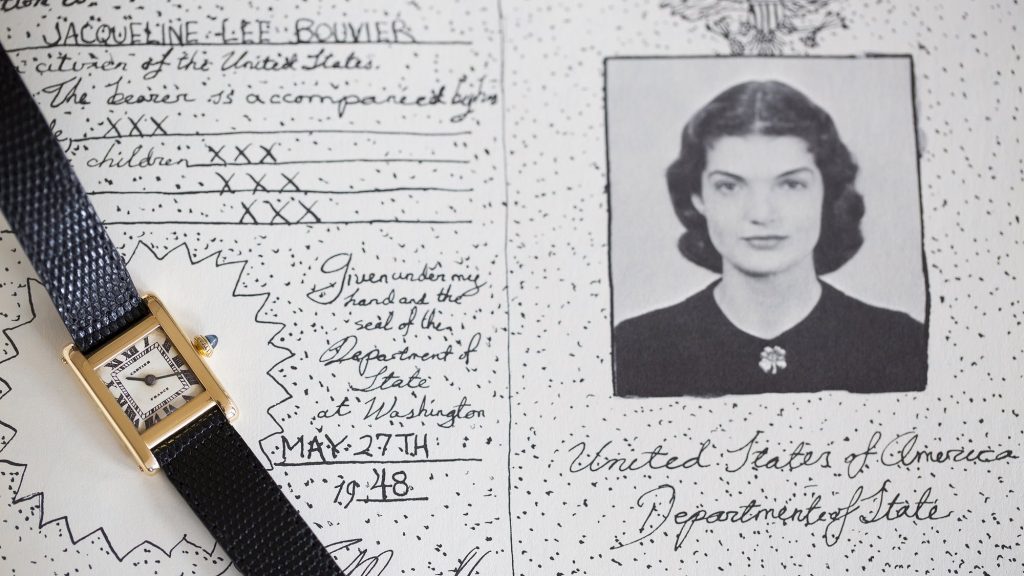 JACQUELINE LEE BOUVIER
citizen of the United States.
The bearer is accompanied by his
XXX
children XXX
XXX
XXX
Given under my
hand and the
seal of the
Department of
State
at Washington
MAY 27TH
19 48
CARTIER
United States of America
Department of State